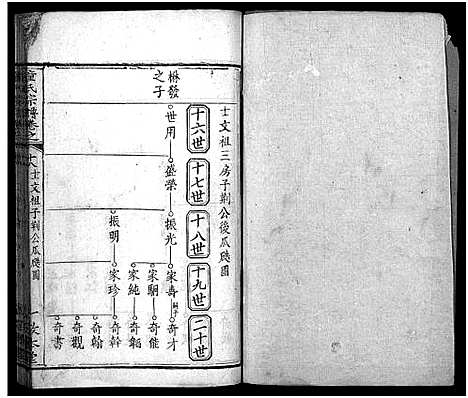 士文祖三房子荆公後瓜瓞圖
十六世
十七世
十八世
十九世
二十世
楙發之子
世用
盛榮
振光
家壽
奇才
家駉
奇能
家純
奇韜
振明
家珍
奇幹
奇翰
奇觀
奇書
氏宗譜卷之
士文祖子荆公瓜瓞圖
一